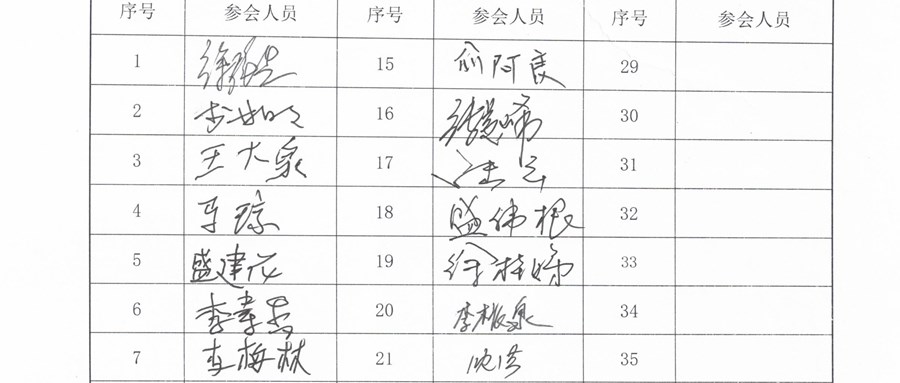 序号 参会人员 序号 参会人员 序号 参会人员
1 15 俞阿良 29
2 16 30
3 王大泉 17 31
4 马琼 18 盛伟根 32
5 盛建花 19 徐桂娣 33
6 李韦杰 20 李根泉 34
7 李梅林 21 沈洪 35